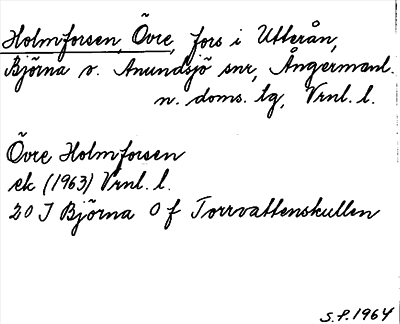 Holmforsen, Övre, fors i Utterån,
Björna s. Anundsjö snr, Ångermanl.
n. doms. lg, Vrnl. l.
Övre Holmforsen
ek (1963) Vrnl. l.
20 J Björna O f Torrvattenskullen
S.P. 1964